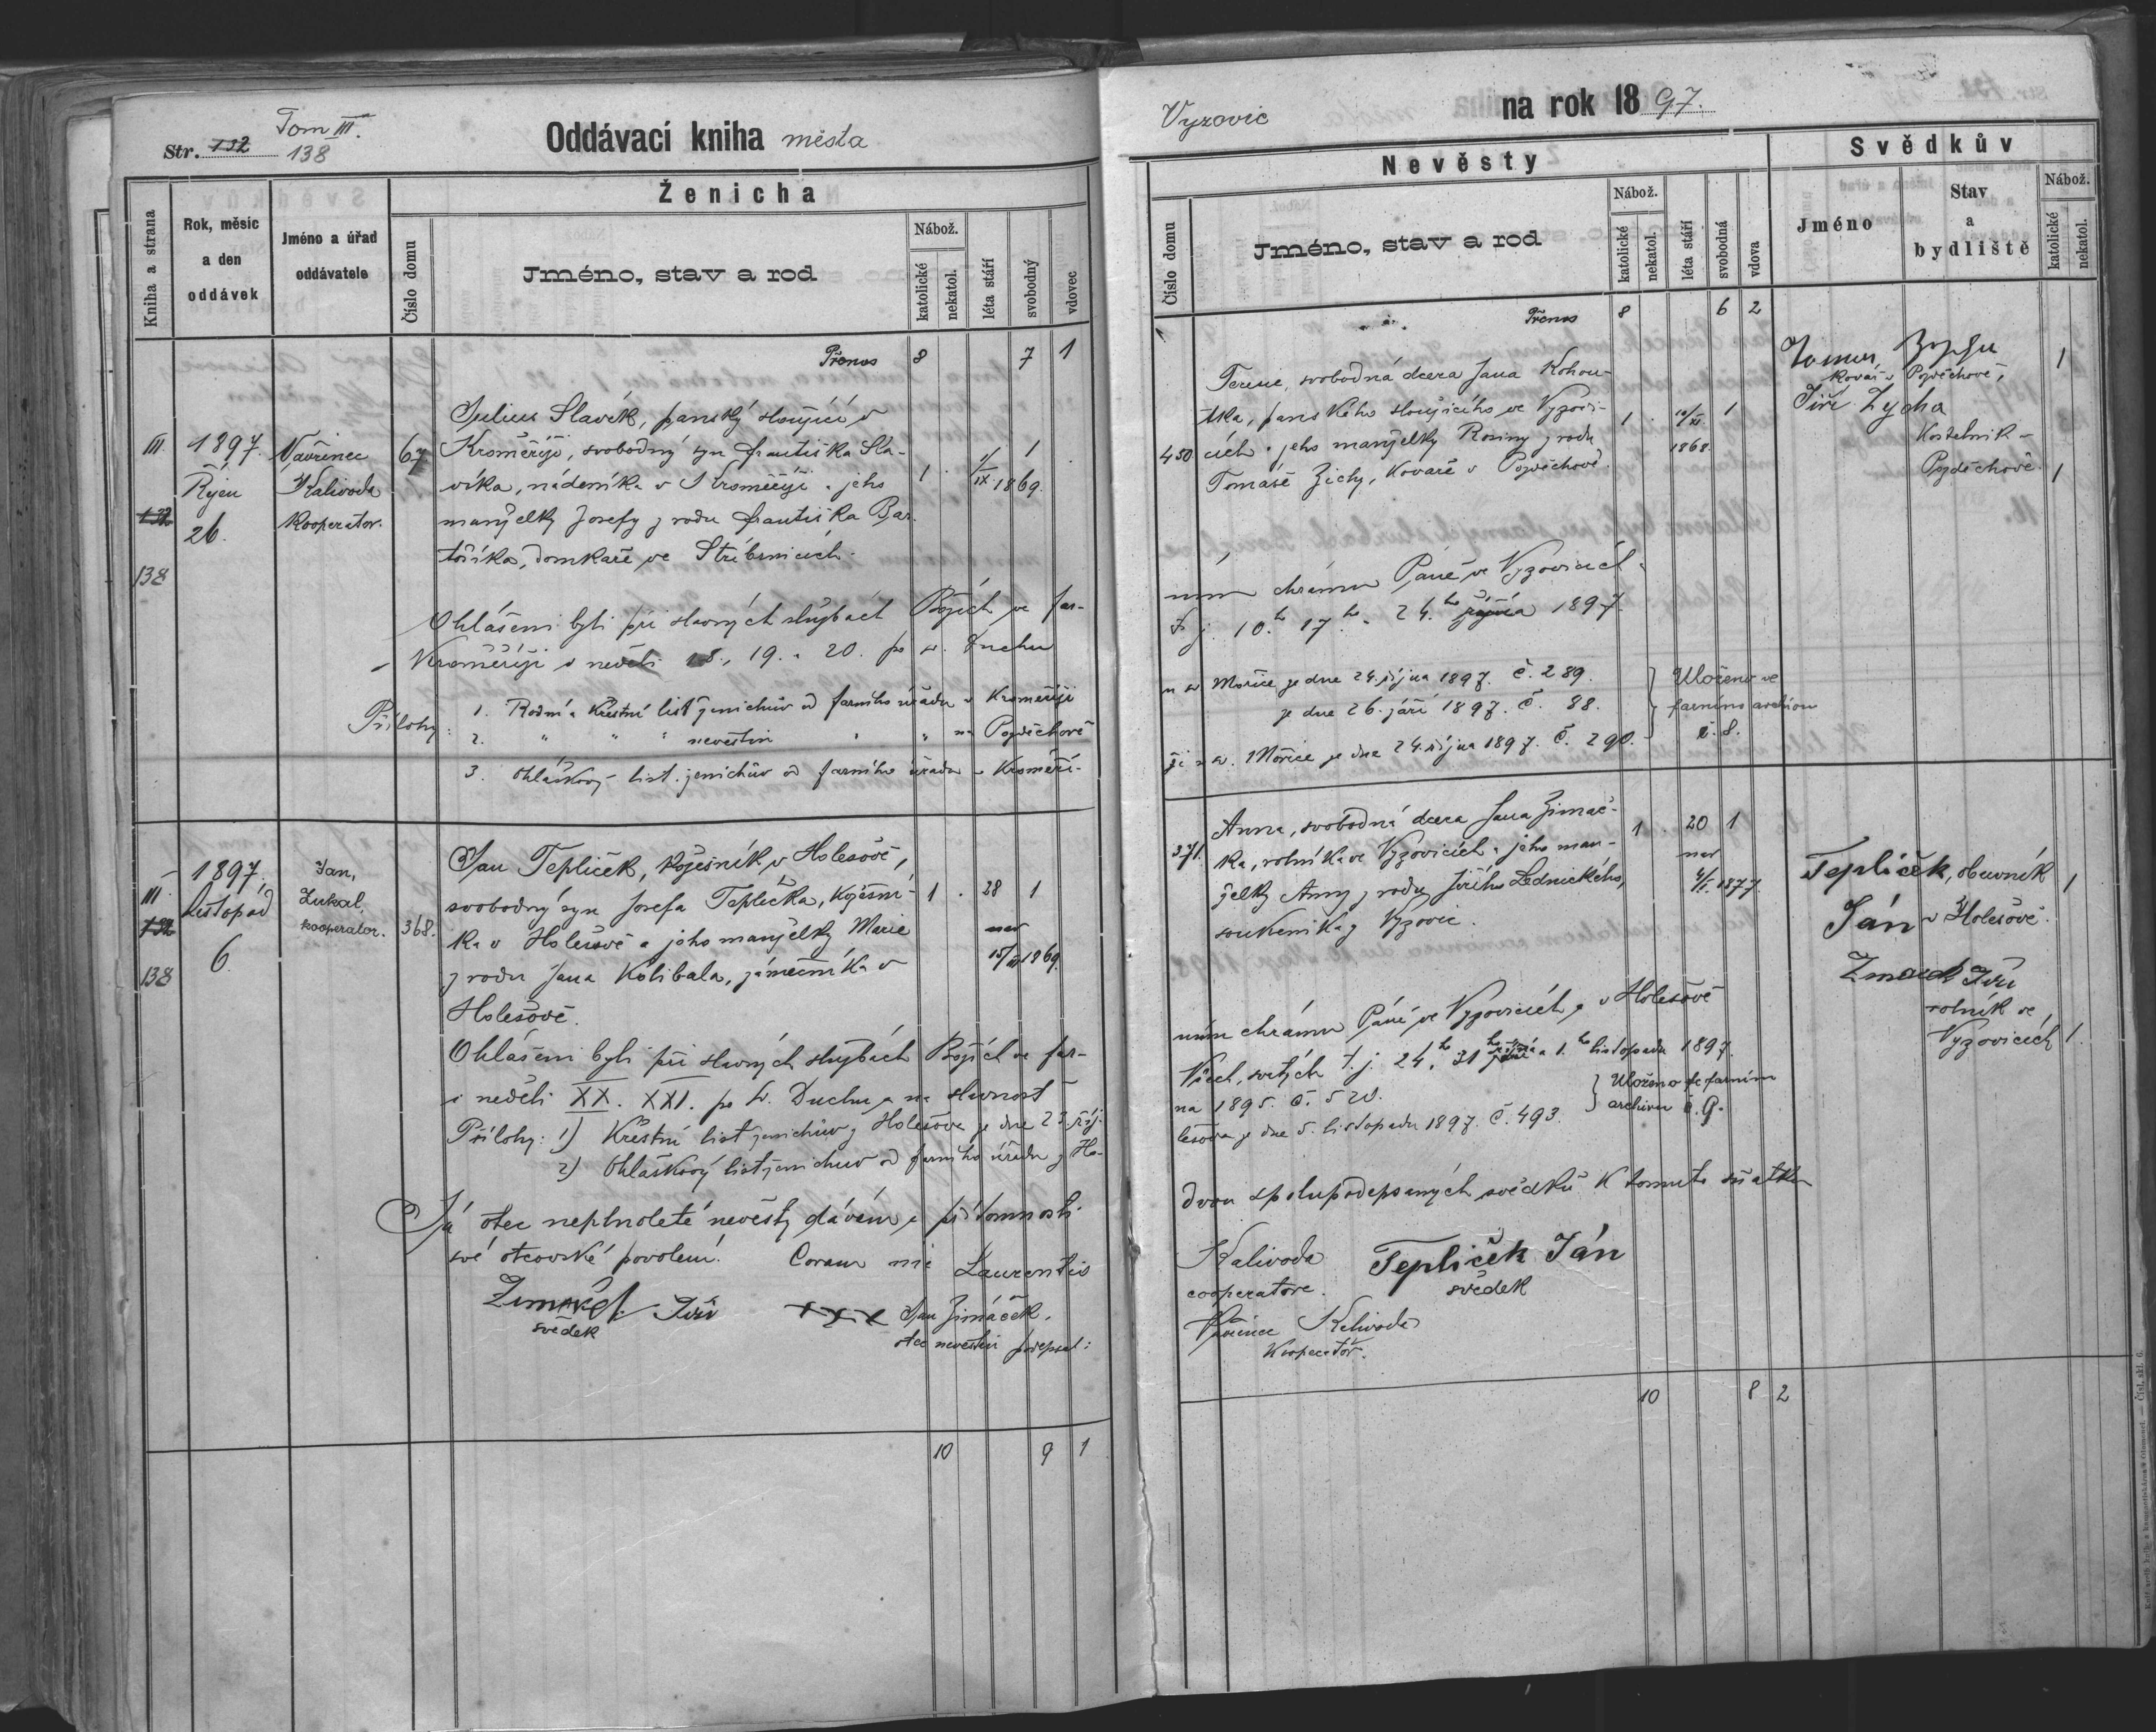 Tom III.
Str. 132 138
Oddávací kniha města
Kniha a strana
Rok, měsíc a den oddávek
Jméno a úřad oddávatele
Ženicha
Číslo domu
Jméno, stav a rod
Nábož.
katolické
nekatol.
léta stáří
svobodný
vdovec
Přenos 8 7 1
III.
132
138
1897.
Říjen
26.
Vavřinec
Kalivoda
Kooperator.
67
Julius Slavík, panský sloužící v
Kroměříži, svobodný syn Františka Sla-
víka, nádeníka v Kroměříži a jeho
manželky Josefy z rodu Františka Bar-
tošíka, domkaře ve Stříbrnicích.
1 1/IX 1869. 1
Ohlášeni byli při slavných službách Božích ve far-
Kroměříži v neděli 18., 19. a 20. po sv. Duchu
Přílohy: 1. Rodní a křestní list ženichův od farního úřadu v Kroměříži
2. " " " nevěstin " " na Pozděchově
3. Ohláškový list ženichův od farního úřadu v Kroměří-
III.
132
138
1897.
Listopad
6.
Jan
Zukal,
kooperator.
368.
Jan Teplíček, kožešník v Holešově,
svobodný syn Josefa Teplíčka, kožešní-
ka v Holešově a jeho manželky Marie
z rodu Jana Kolibala, zámečníka v
Holešově.
1 . 28 1
nar
15/III 1869.
Ohlášeni byli při slavných službách Božích ve far-
v neděli XX. XXI. po sv. Duchu a na slavnost
Přílohy: 1) Křestní list ženichův z Holešova ze dne 23. říj-
2) Ohláškový list ženichův od farního úřadu z Ho-
Já otec neplnoleté nevěsty dávám v přítomnosti
své otcovské povolení. Coram me Laurentio
svědek
+++ Jan Zimáček.
otec nevěstin podepsal:
10 9 1
Vyzovic
na rok 1897.
Nevěsty
Číslo domu
Jméno, stav a rod
Nábož.
katolické
nekatol.
léta stáří
svobodná
vdova
Svědkův
Jméno
Stav a bydliště
Nábož.
katolické
nekatol.
Přenos 8 6 2
450
Terezie, svobodná dcera Jana Kohou-
tka, panského sloužícího ve Vyzovi-
cích a jeho manželky Rosiny z rodu
Tomáše Zichy, kováře v Pozděchově.
1 . 10/XI 1868. 1
kovář v Pozděchově, 1
Jiří Zycha
Kostelník
Pozděchově 1
ním chrámu Páně ve Vyzovicích a
t. j. 10.ho 17.ho a 24.ho října 1897.
u sv. Mořice ze dne 24. října 1897. č. 289.
ze dne 26. září 1897. č. 88.
ži u sv. Mořice ze dne 24. října 1897. č. 290.
Uloženo ve
farním archivu
č. 8.
371.
Anna, svobodná dcera Jana Zimáč-
ka, rolníka ve Vyzovicích a jeho man-
želky Anny z rodu Jiřího Lednického,
soukeníka z Vyzovic.
1 . 20 1
nar
4/I. 1877.
Teplíček, obuvník 1
Ján v Holešově.
rolník ve
Vyzovicích 1.
ním chrámu Páně ve Vyzovicích a v Holešově
Všech svatých t. j. 24.ho 31. října a 1.ho listopadu 1897.
na 1895. č. 520.
lešova ze dne 5. listopadu 1897. č. 493.
Uloženo ve farním
archivu č. 9.
dvou spolupodepsaných svědků k tomuto sňatku
Kalivoda
cooperatore.
Teplíček Ján
svědek
Vavřinec Kalivoda
Kooperátor.
10 8 2